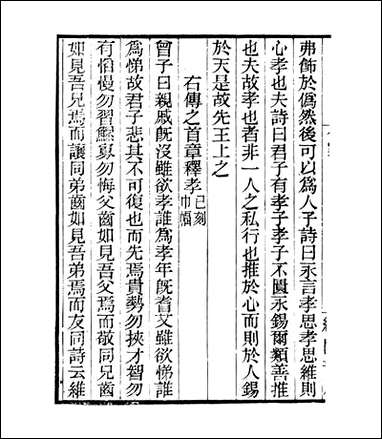 弗飾於僞然後可以爲人子詩曰永言孝思孝思維則
心孝也夫詩曰君子有孝子孝子不匱永錫爾類善推
也夫故孝也者非一人之私行也推於心而則於人錫
於天是故先王上之
右傳之首章釋孝已刻巾編
曾子曰親戚旣沒雖欲孝誰爲孝年旣耆艾雖欲悌誰
爲悌故君子悲其不可復也而先焉貴勢勿挾才智勿
有怕慢勿習鰥寡勿侮父齒如見吾父焉而敬同兄齒
如見吾兄焉而讓同弟齒如見吾弟焉而友同詩云維